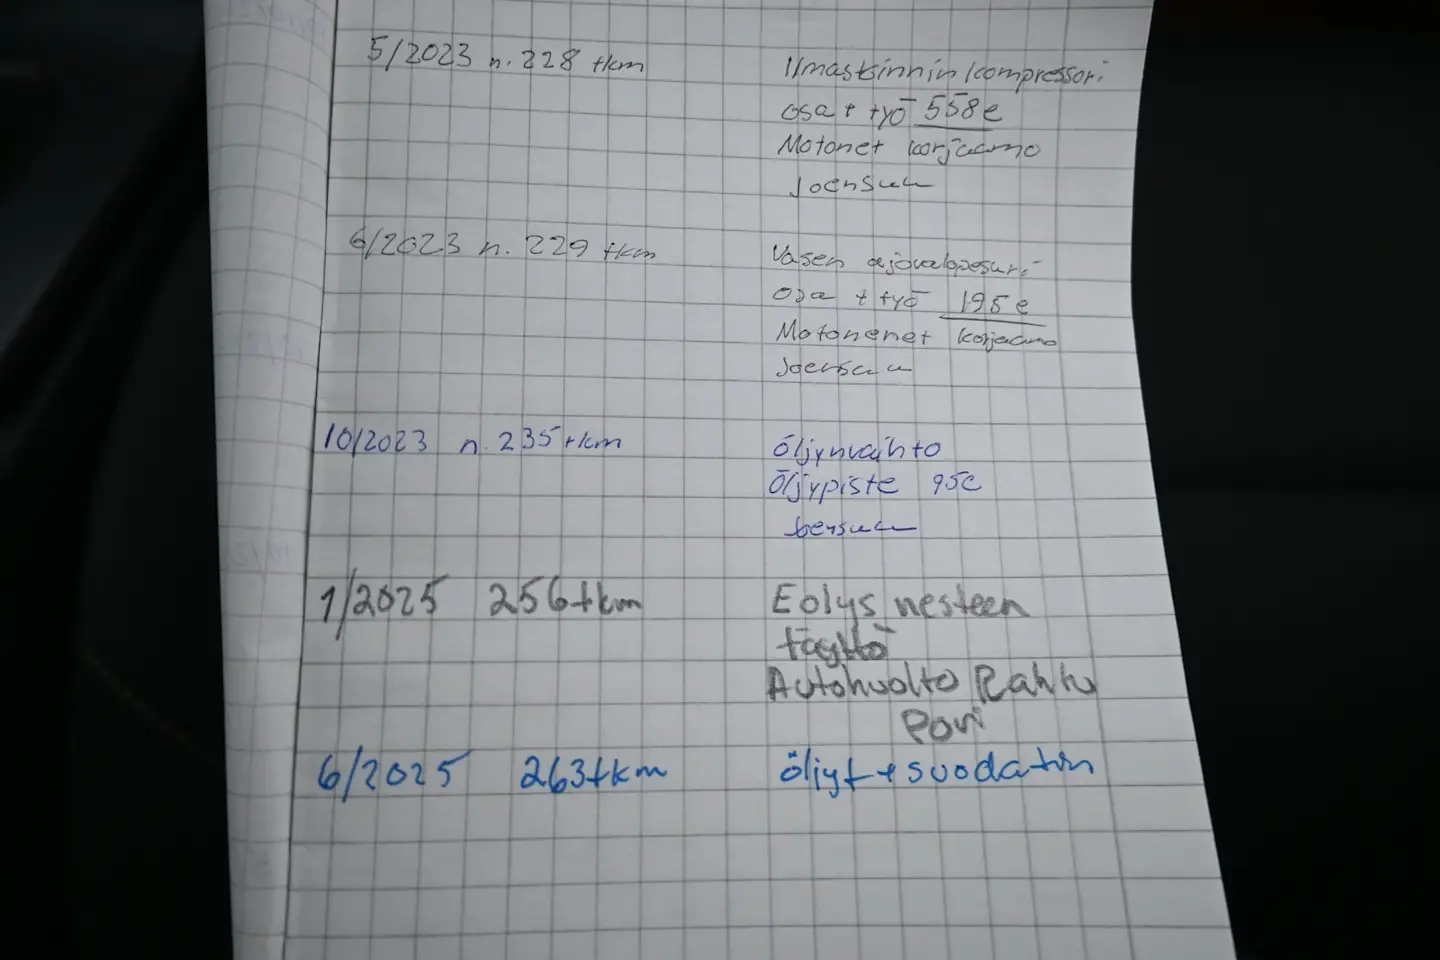 5/2023 n. 228 tkm Ilmastinnin kompressori
osa + työ 558e
Motonet korjaamo
Joensuu
6/2023 n. 229 tkm Vasen ajovalopesuri
Osa + työ 195e
Motonenet korjaamo
Joensuu
10/2023 n. 235 tkm Öljynvaihto
Öljypiste 95e
Joensuu
1/2025 256tkm Eolys nesteen
täyttö
Autohuolto Rahtu
Pori
6/2025 263tkm öljyt + suodatin